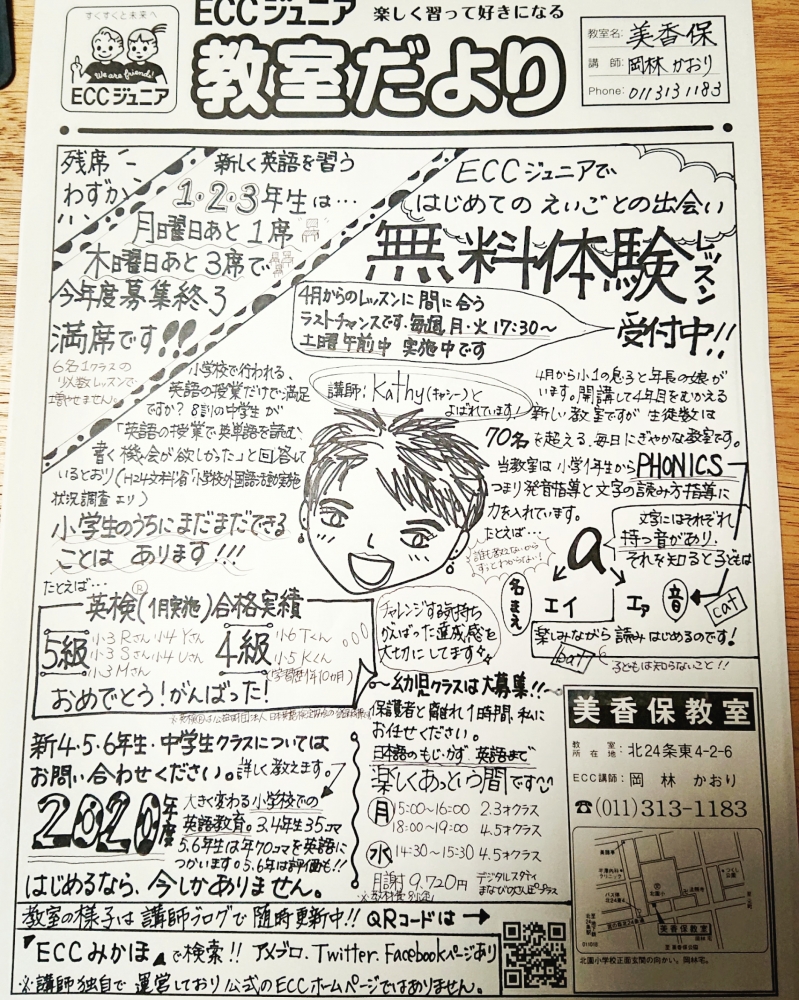 すくすくと未来へ
We are friends!
ECCジュニア
ECCジュニア 楽しく習って好きになる
教室だより
教室名: 美香保
講師: 岡林 かおり
Phone: 011 313 1183
残席
わずか
新しく英語を習う
1・2・3年生は…
月曜日あと1席
木曜日あと3席で
今年度募集終了
満席です!!
6名1クラスの
少数レッスンで
増やせません。
ECCジュニアで
はじめての えいごとの出会い
無料体験レッスン
受付中!!
4月からのレッスンに間に合う
ラストチャンスです。毎週月・火17:30〜
土曜午前中 実施中です
小学校で行われる、
英語の授業だけで満足
ですか? 8割の中学生が
「英語の授業で英単語を読む、
書く機会が欲しかった」と回答して
いるとおり(H24文科省「小学校外国語活動実施
状況調査より)
小学生のうちにまだまだできる
ことは あります!!!
講師:Kathy(キャシー)と
よばれています!
4月から小1の息子と年長の娘が
います。開講して4年目をむかえる
新しい教室ですが 生徒数は
70名を超える、毎日にぎやかな教室です。
当教室は小学1年生からPHONICS
つまり発音指導と文字の読み方指導に
力を入れています。
たとえば…
誰も教えないから
ずっとわからない!
a
文字にはそれぞれ
持つ音があり、
それを知ると子どもは
名まえ
エイ
エァ
音
cat
bat
楽しみながら読みはじめるのです!
子どもは知らないこと!!
たとえば…
英検®(1月実施)合格実績
5級
小3Rさん 小4Yさん
小3Sさん 小4Uさん
小3Mさん
4級
小6Tくん
小5Kくん
(学習歴1年10ヶ月)
おめでとう!がんばった!
チャレンジする気持ち
がんばった達成感を
大切にしてます
新4・5・6年生・中学生クラスについては
お問い合わせください。詳しく教えます。
2020年度
大きく変わる小学校での
英語教育。3.4年生35コマ
5.6年生は年70コマを英語に
つかいます。5.6年は評価も!!
はじめるなら、今しかありません。
〜幼児クラスは大募集!!〜
保護者と離れ1時間、私に
お任せください。
日本語のもじ・かず、英語まで
楽しくあっという間です
月 15:00〜16:00 2.3才クラス
18:00〜19:00 4.5才クラス
水 14:30〜15:30 4.5才クラス
月謝 9.720円 デジタルスタディ
※教材費別途
美香保教室
教室所在地: 北24条東4-2-6
ECC講師: 岡林 かおり
☎(011)313-1183
美香保教室
北園小学校正面玄関の向かい。岡林宅。
教室の様子は講師ブログで随時更新中!! QRコードは→
「ECCみかほ」で検索!! アメブロ.Twitter.Facebookページあり
※講師独自で運営しており公式のECCホームページではありません。